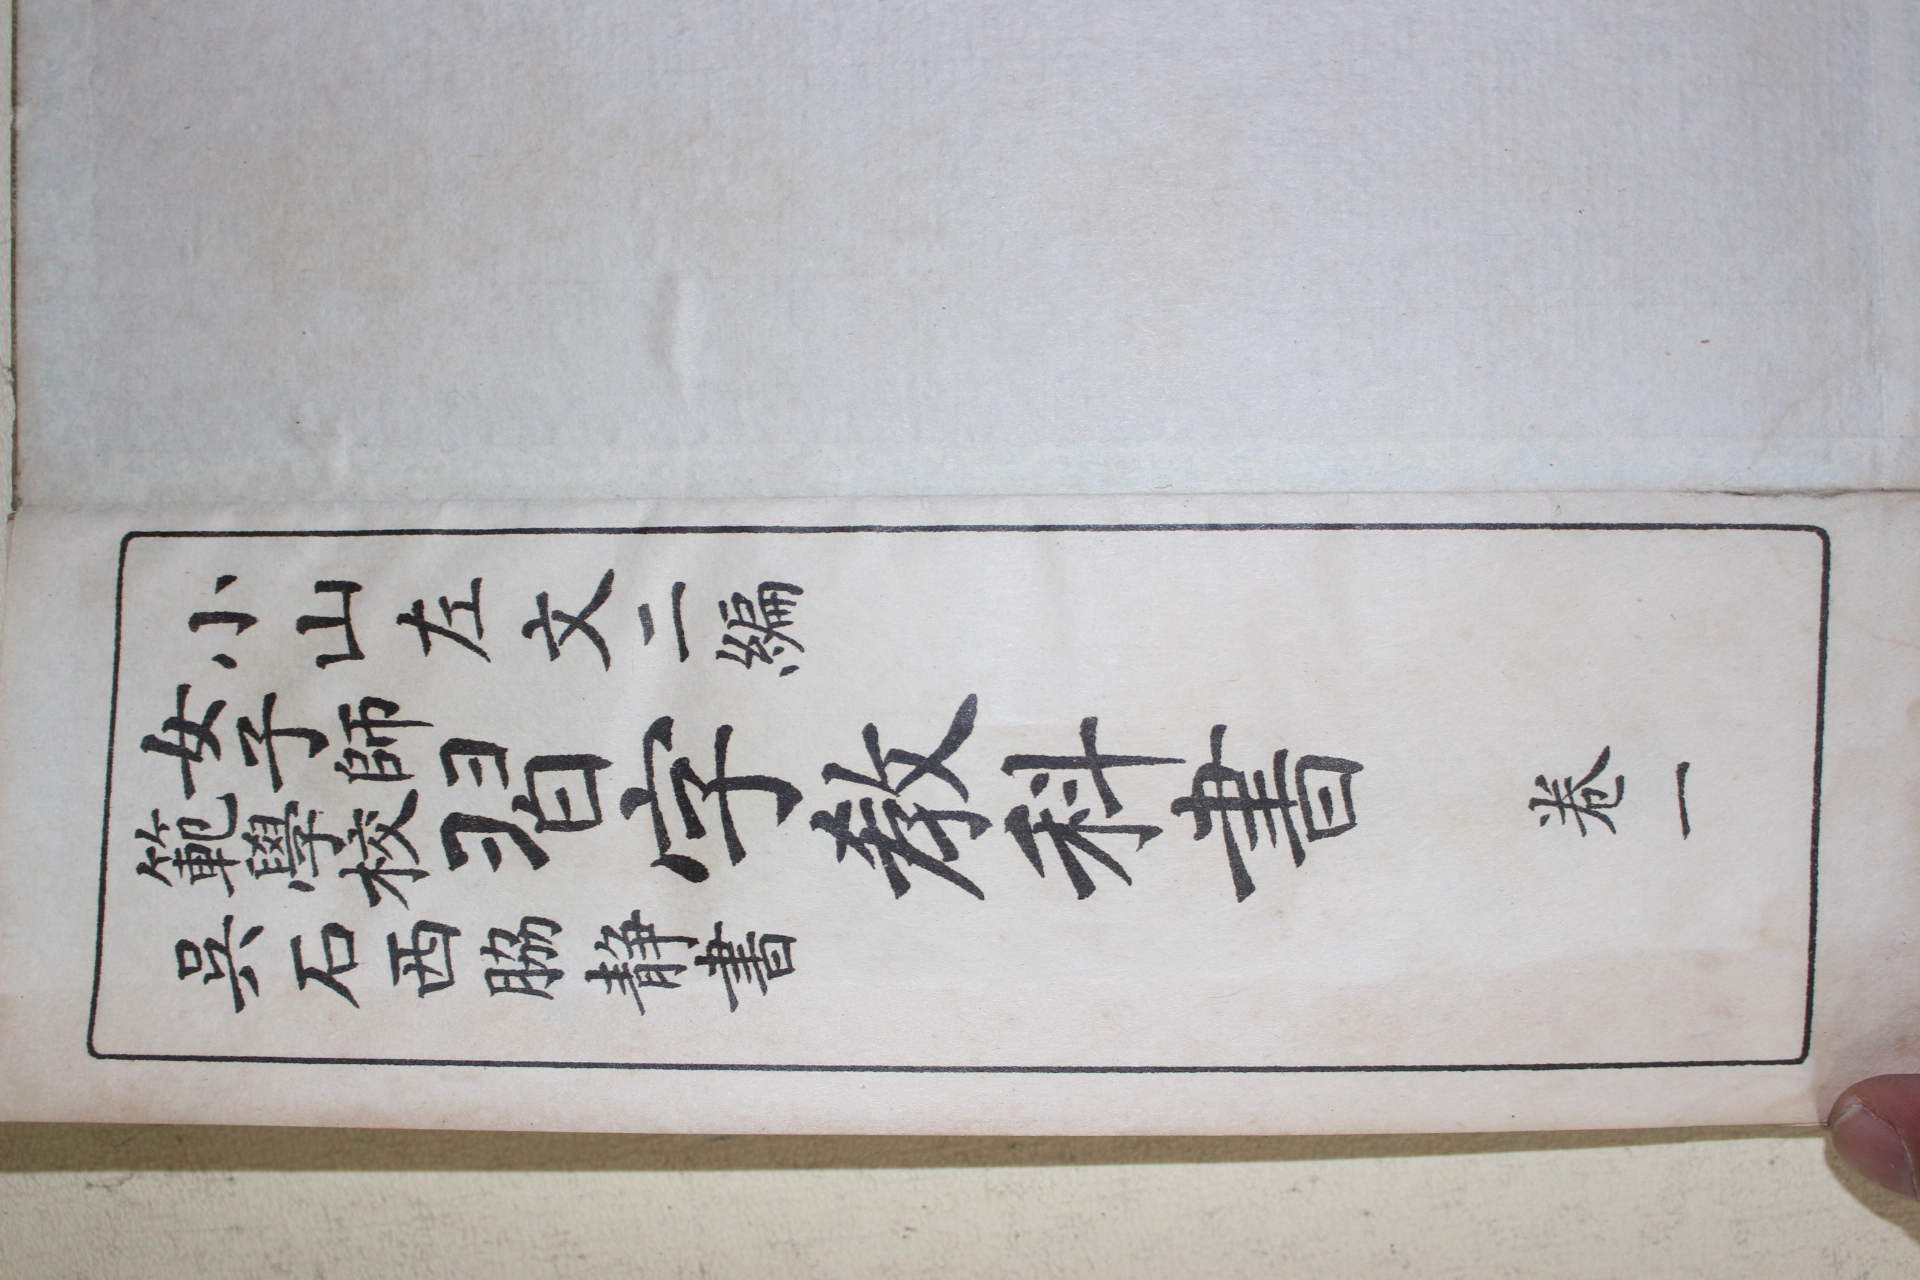 小山左文二編
女子師範學校
習字教科書 卷一
吴石西脇静書